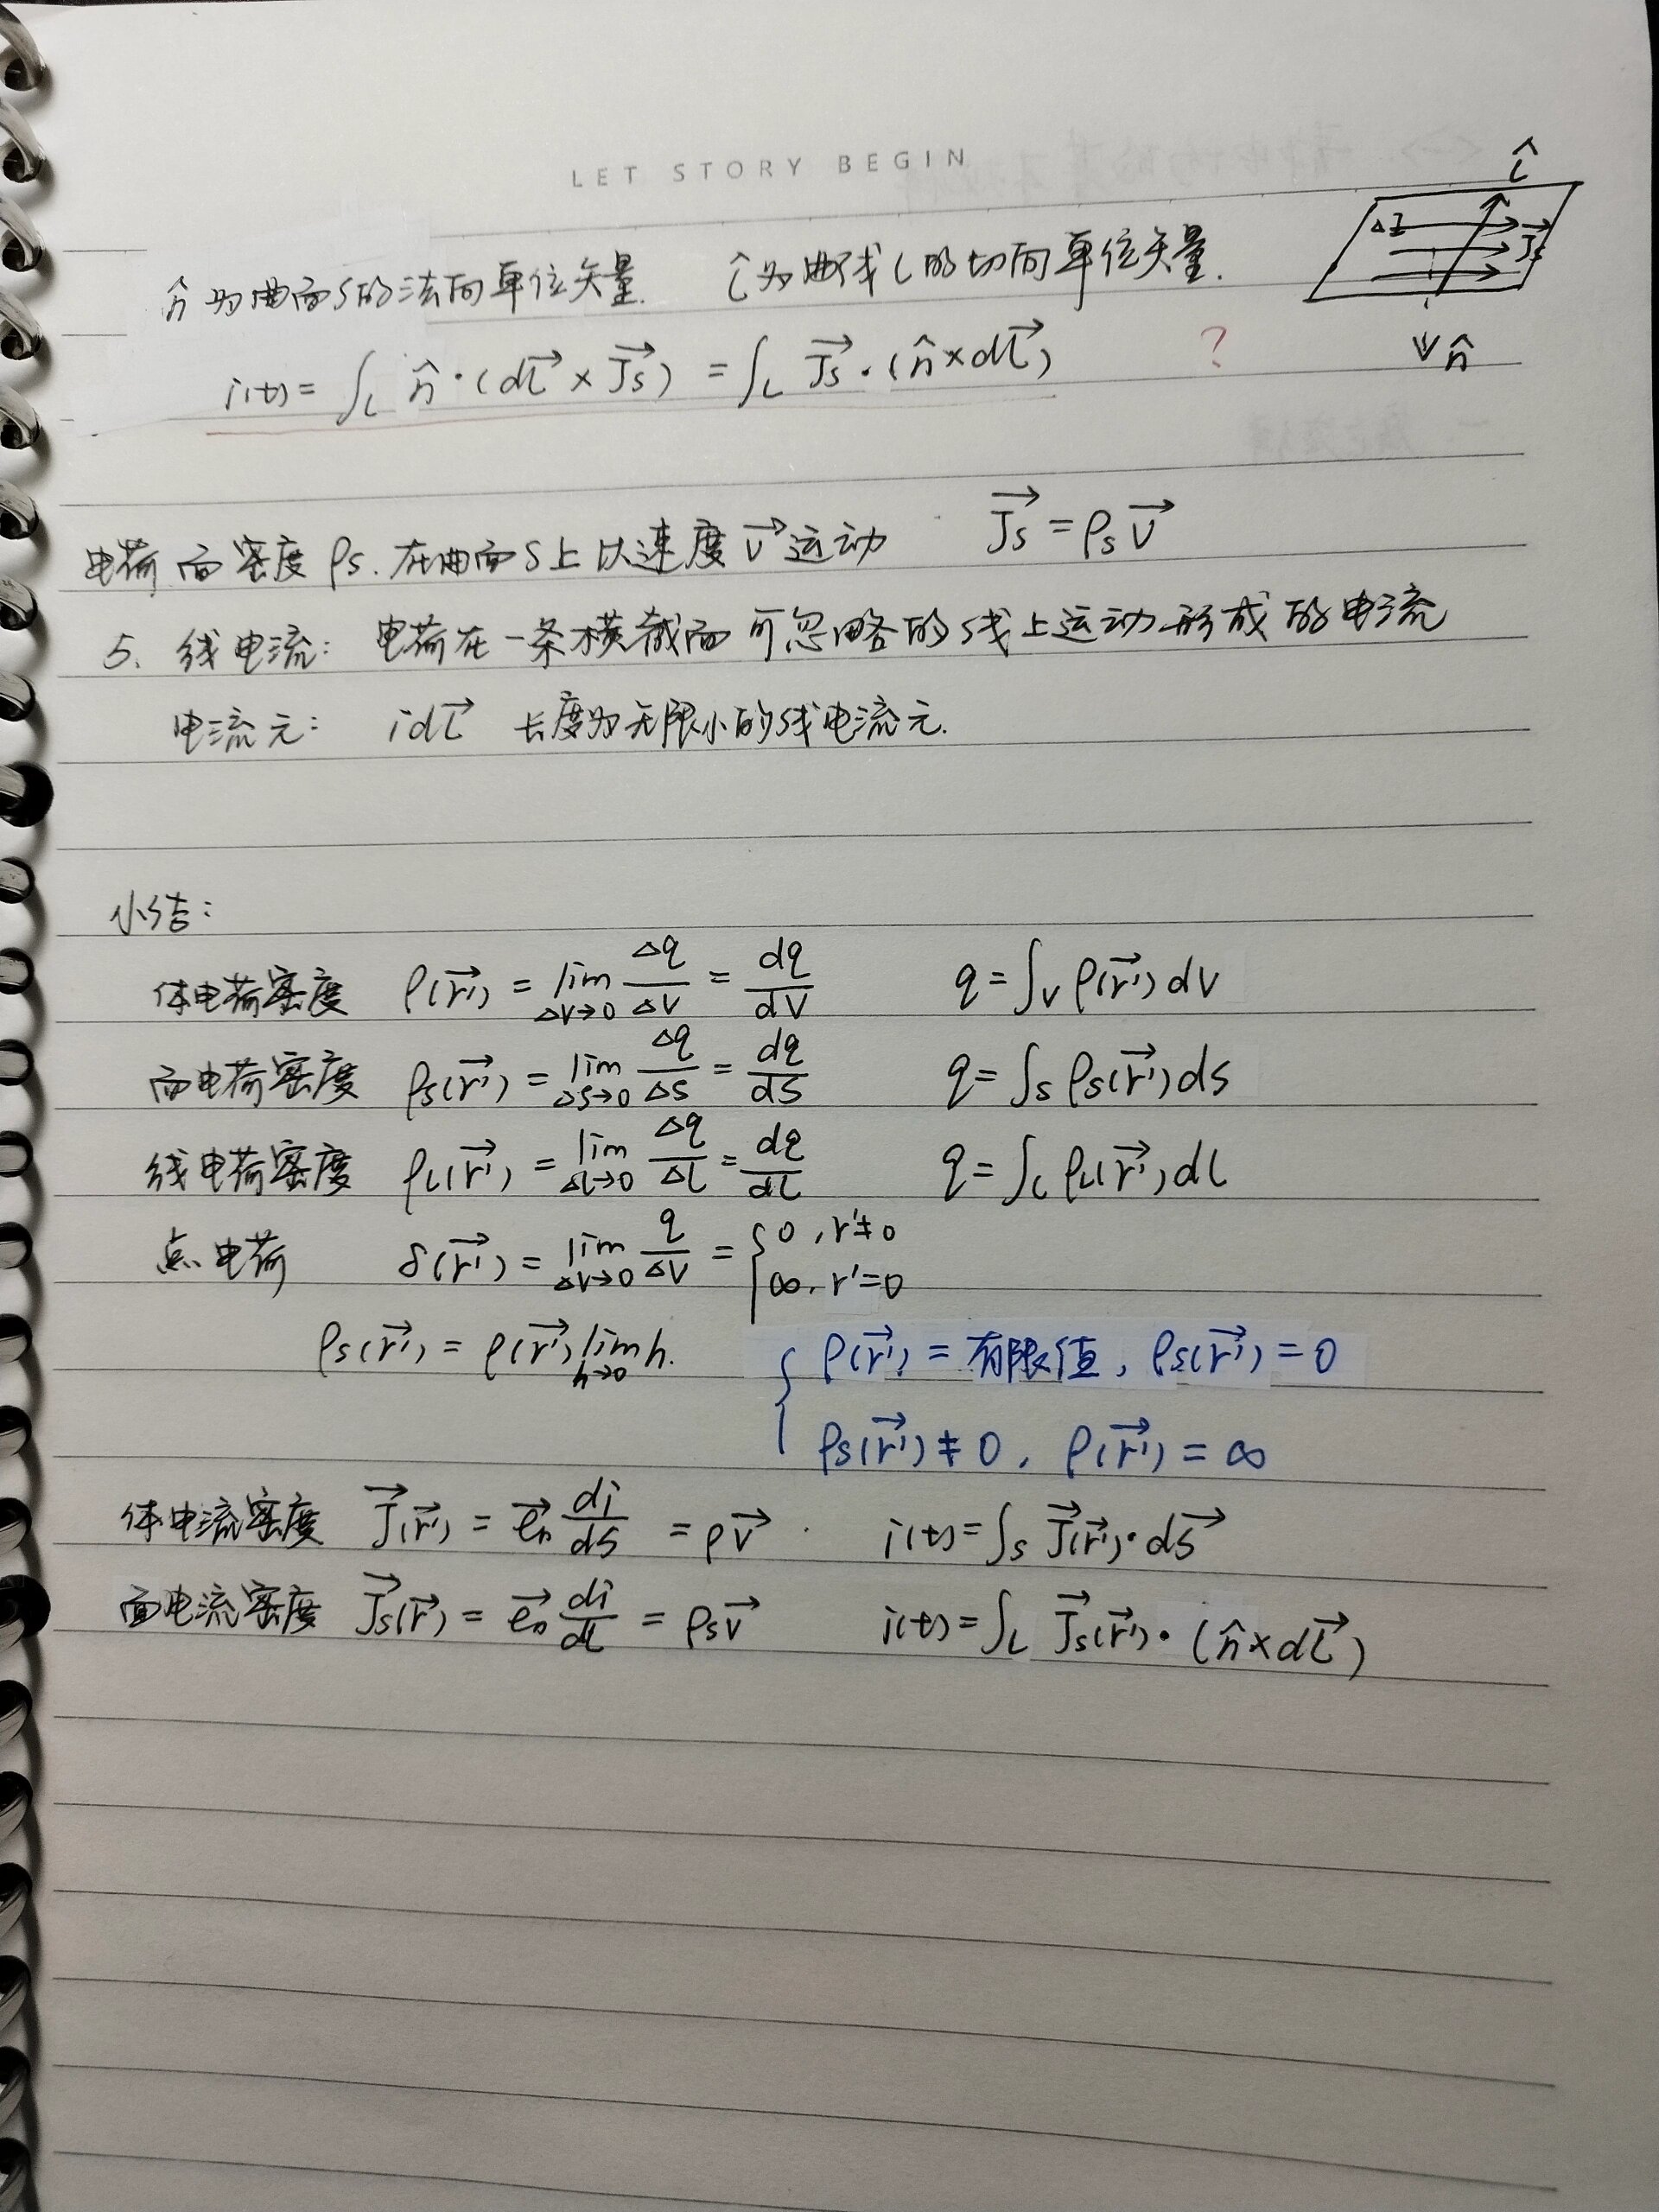 LET STORY BEGIN
n̂ 为曲面S的法向单位矢量. l̂为曲线l的切向单位矢量.
l̂
ΔI
J⃗s
n̂
i(t) = ∫_l n̂·(dl⃗ × J⃗s) = ∫_l J⃗s·(n̂×dl⃗) ?
电荷面密度 ρs. 在曲面S上以速度 v⃗ 运动 J⃗s = ρs v⃗
5. 线电流: 电荷在一条横截面可忽略的线上运动形成的电流
电流元: idl⃗ 长度为无限小的线电流元.
小结:
体电荷密度 ρ(r⃗') = lim_{ΔV→0} Δq/ΔV = dq/dV q = ∫_V ρ(r⃗')dV
面电荷密度 ρs(r⃗') = lim_{ΔS→0} Δq/ΔS = dq/dS q = ∫_S ρs(r⃗')ds
线电荷密度 ρl(r⃗') = lim_{Δl→0} Δq/Δl = dq/dl q = ∫_l ρl(r⃗')dl
点电荷 δ(r⃗') = lim_{ΔV→0} q/ΔV = { 0, r'≠0
∞, r'=0
ρs(r⃗') = ρ(r⃗') lim_{h→0} h. { ρ(r⃗') = 有限值, ρs(r⃗') = 0
ρs(r⃗') ≠ 0, ρ(r⃗') = ∞
体电流密度 J⃗(r⃗') = e⃗n di/ds = ρv⃗ i(t) = ∫_S J⃗(r⃗')·ds⃗
面电流密度 J⃗s(r⃗') = e⃗n di/dl = ρs v⃗ i(t) = ∫_l J⃗s(r⃗')·(n̂×dl⃗)